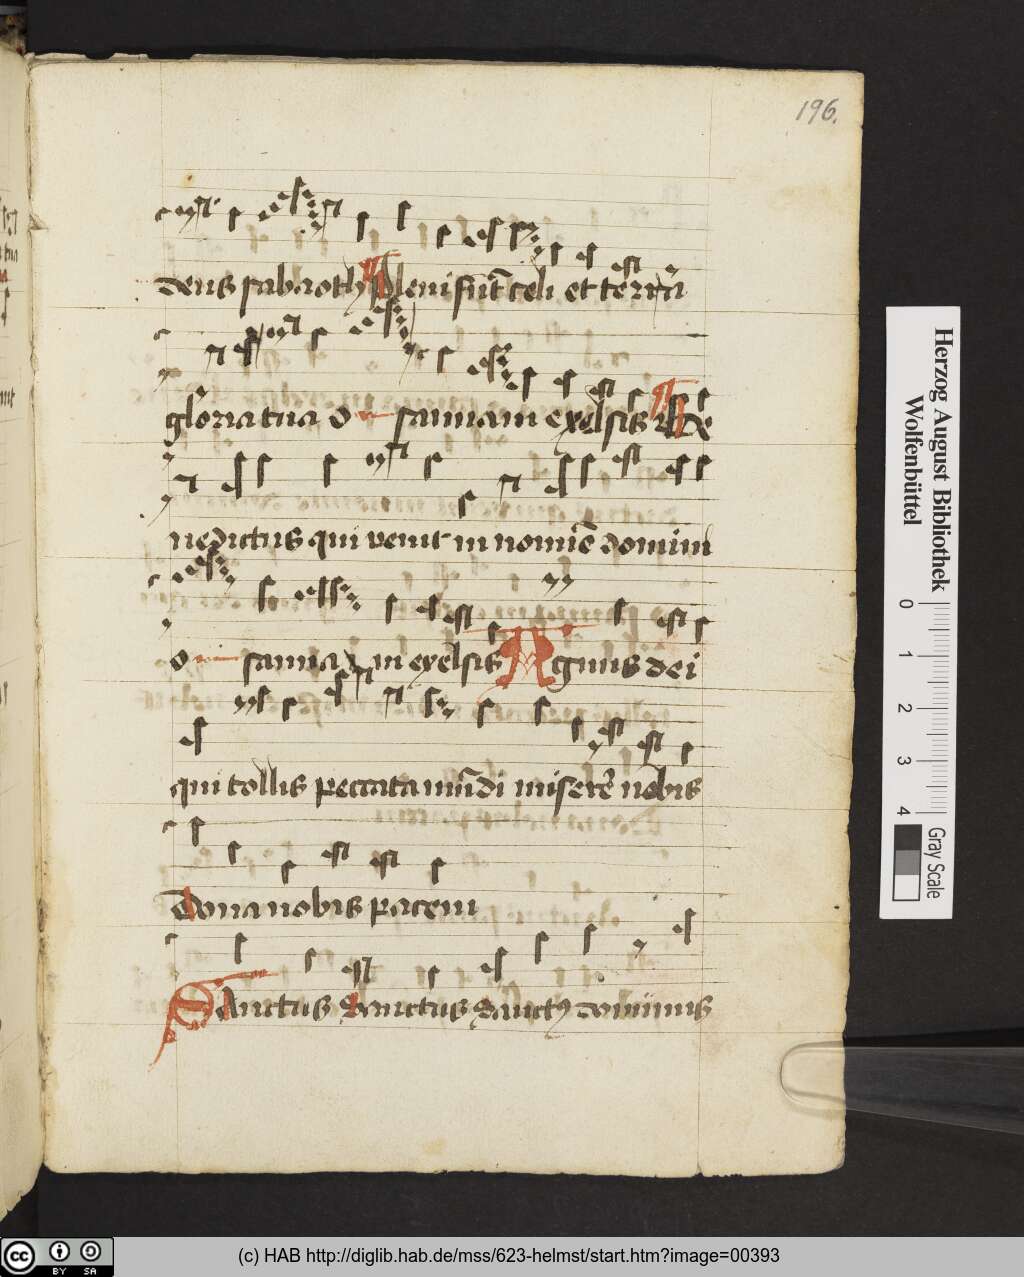 196.
deus sabaoth Pleni sūt celi et terra
gloria tua o sanna in exelsis Be
nedictus qui venit in nomīe domini
o sanna in exelsis Agnus dei
qui tollis peccata mūdi miserē nobis
dona nobis pacem
Sanctus Sanctus Sanctꝰ dominus
Herzog August Bibliothek
Wolfenbüttel
0 1 2 3 4
Gray Scale
cc BY SA
(c) HAB http://diglib.hab.de/mss/623-helmst/start.htm?image=00393